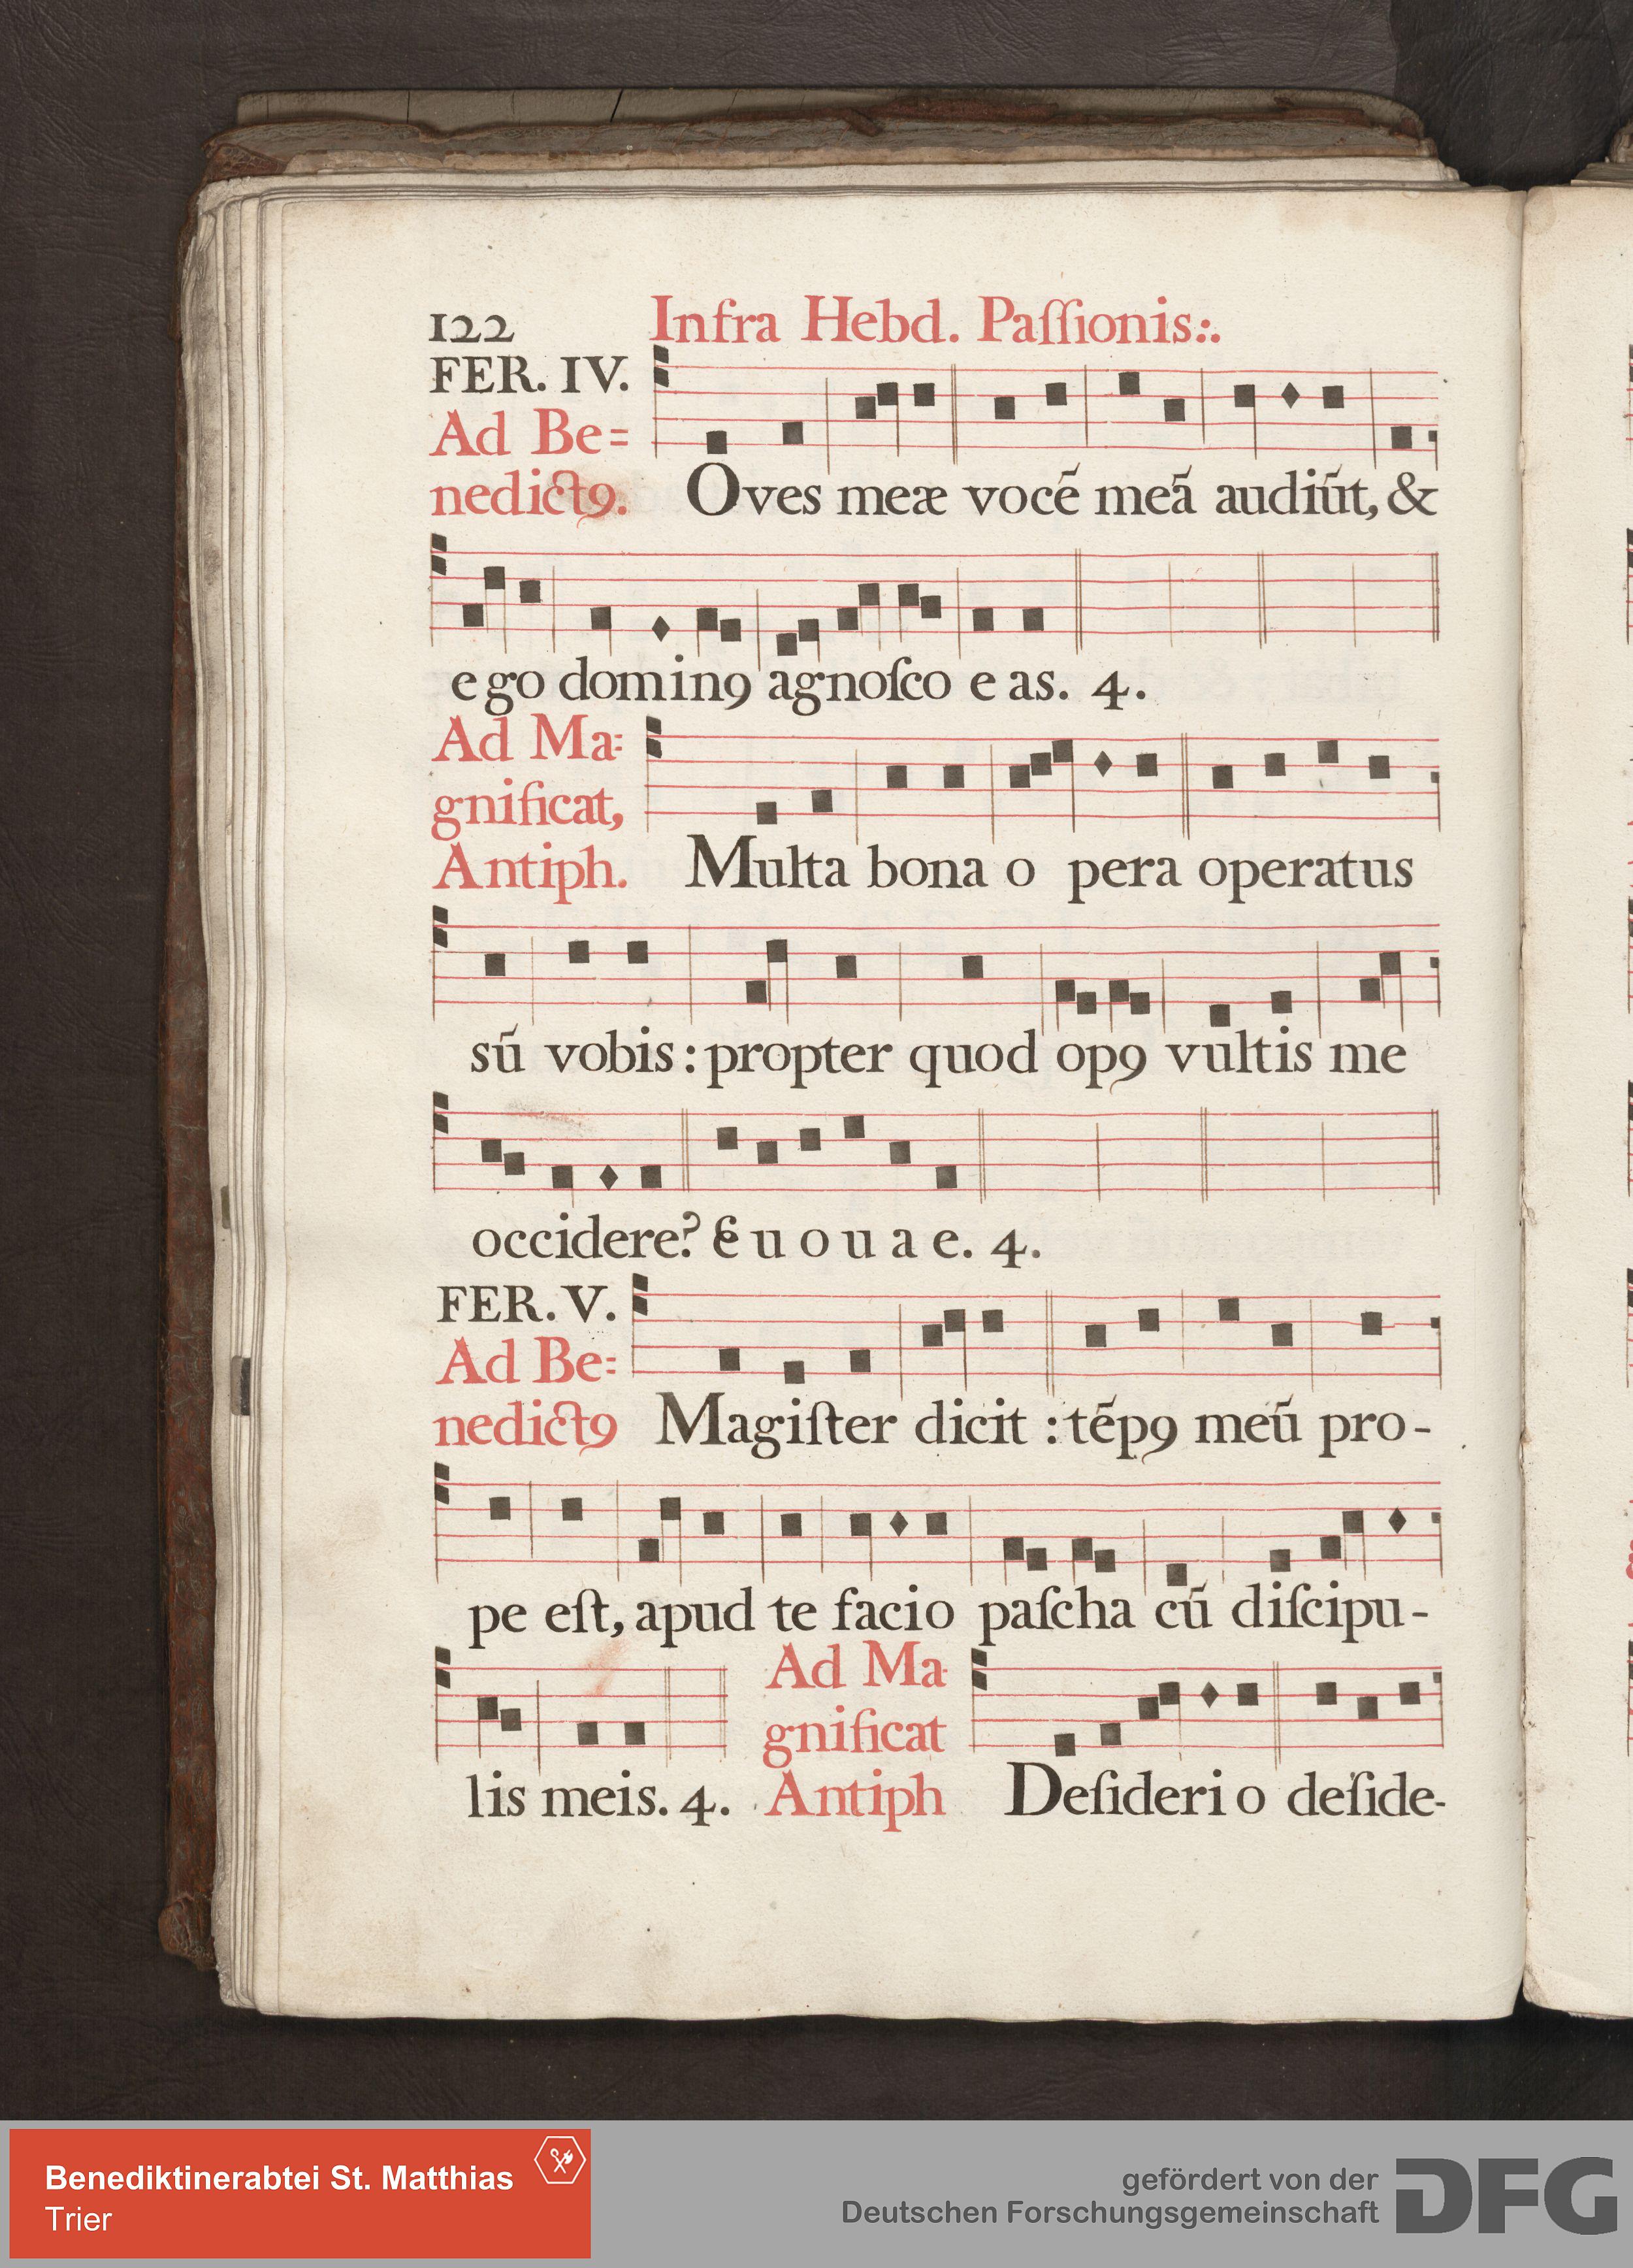 122 Infra Hebd. Paſſionis:.
FER. IV.
Ad Be=
nedictꝯ. Oves meæ vocẽ meã audiũt, &
ego dominꝯ agnoſco eas. 4.
Ad Ma:
gnificat,
Antiph. Multa bona o pera operatus
sũ vobis: propter quod opꝯ vultis me
occidere? E u o u a e. 4.
FER. V.
Ad Be:
nedictꝯ Magiſter dicit: tẽpꝯ meũ pro-
pe eſt, apud te facio paſcha cũ diſcipu-
lis meis. 4. Ad Ma
gnificat
Antiph Deſiderio deſide-
Benediktinerabtei St. Matthias
Trier
gefördert von der
Deutschen Forschungsgemeinschaft
DFG